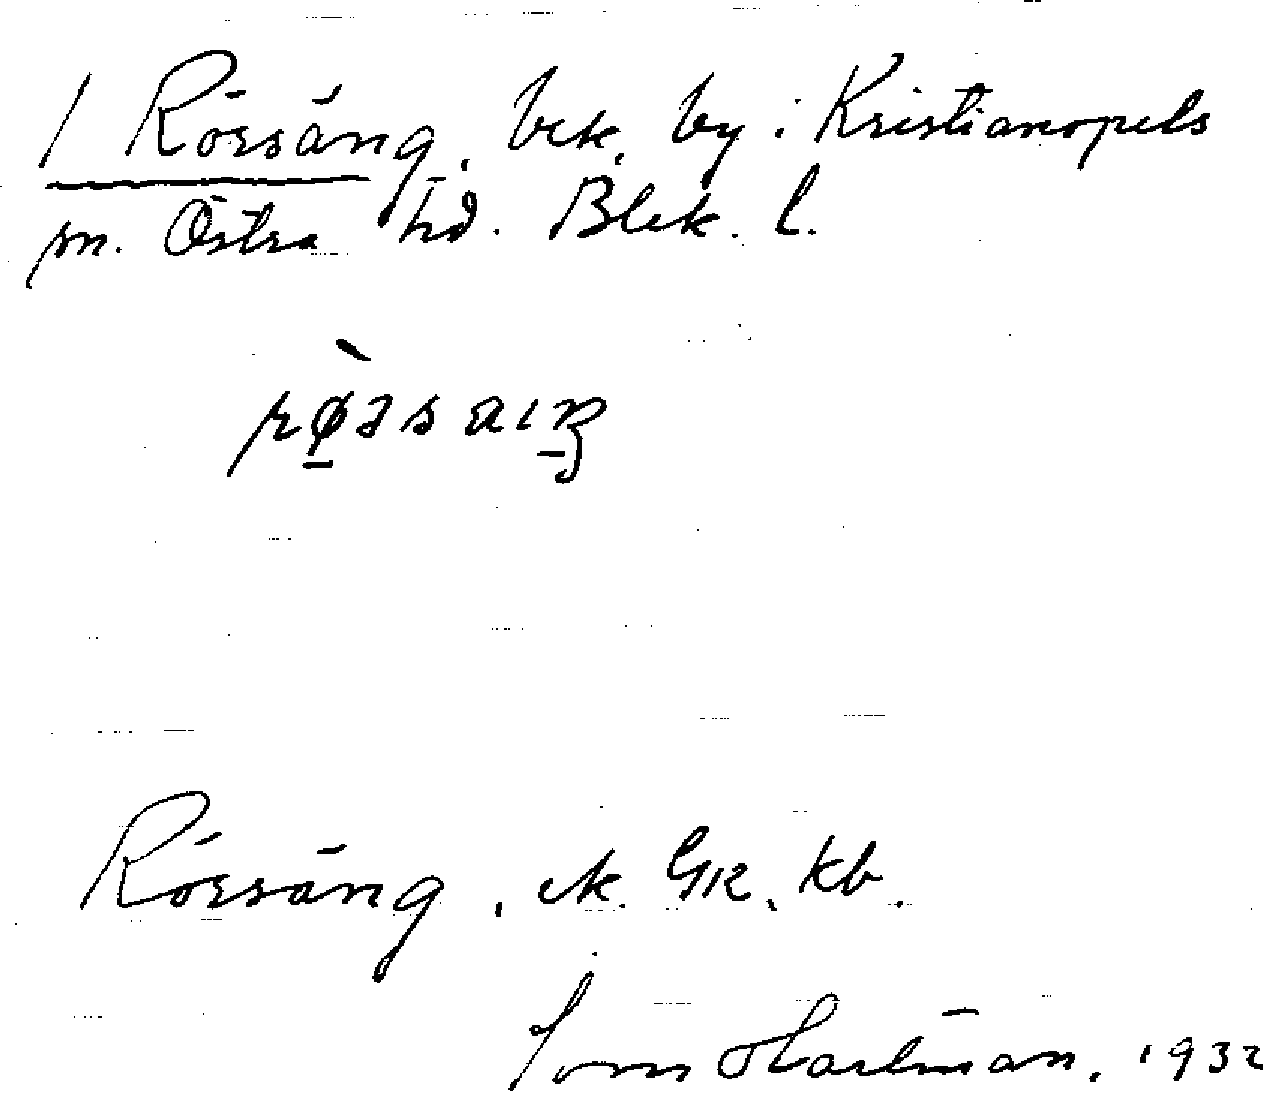 / Rörsäng, bek. by i Kristianopels
sn. Östra hd. Blek. l.
Rörsäng, ek. GK. Kb.
Hartman, 1932